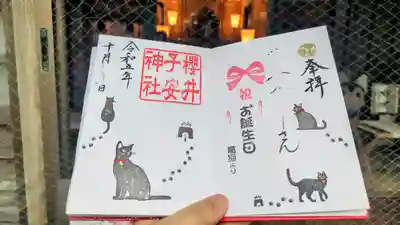 奉拝
祝
お誕生日
さん
櫻井
子安
神社
令和五年
十月
日